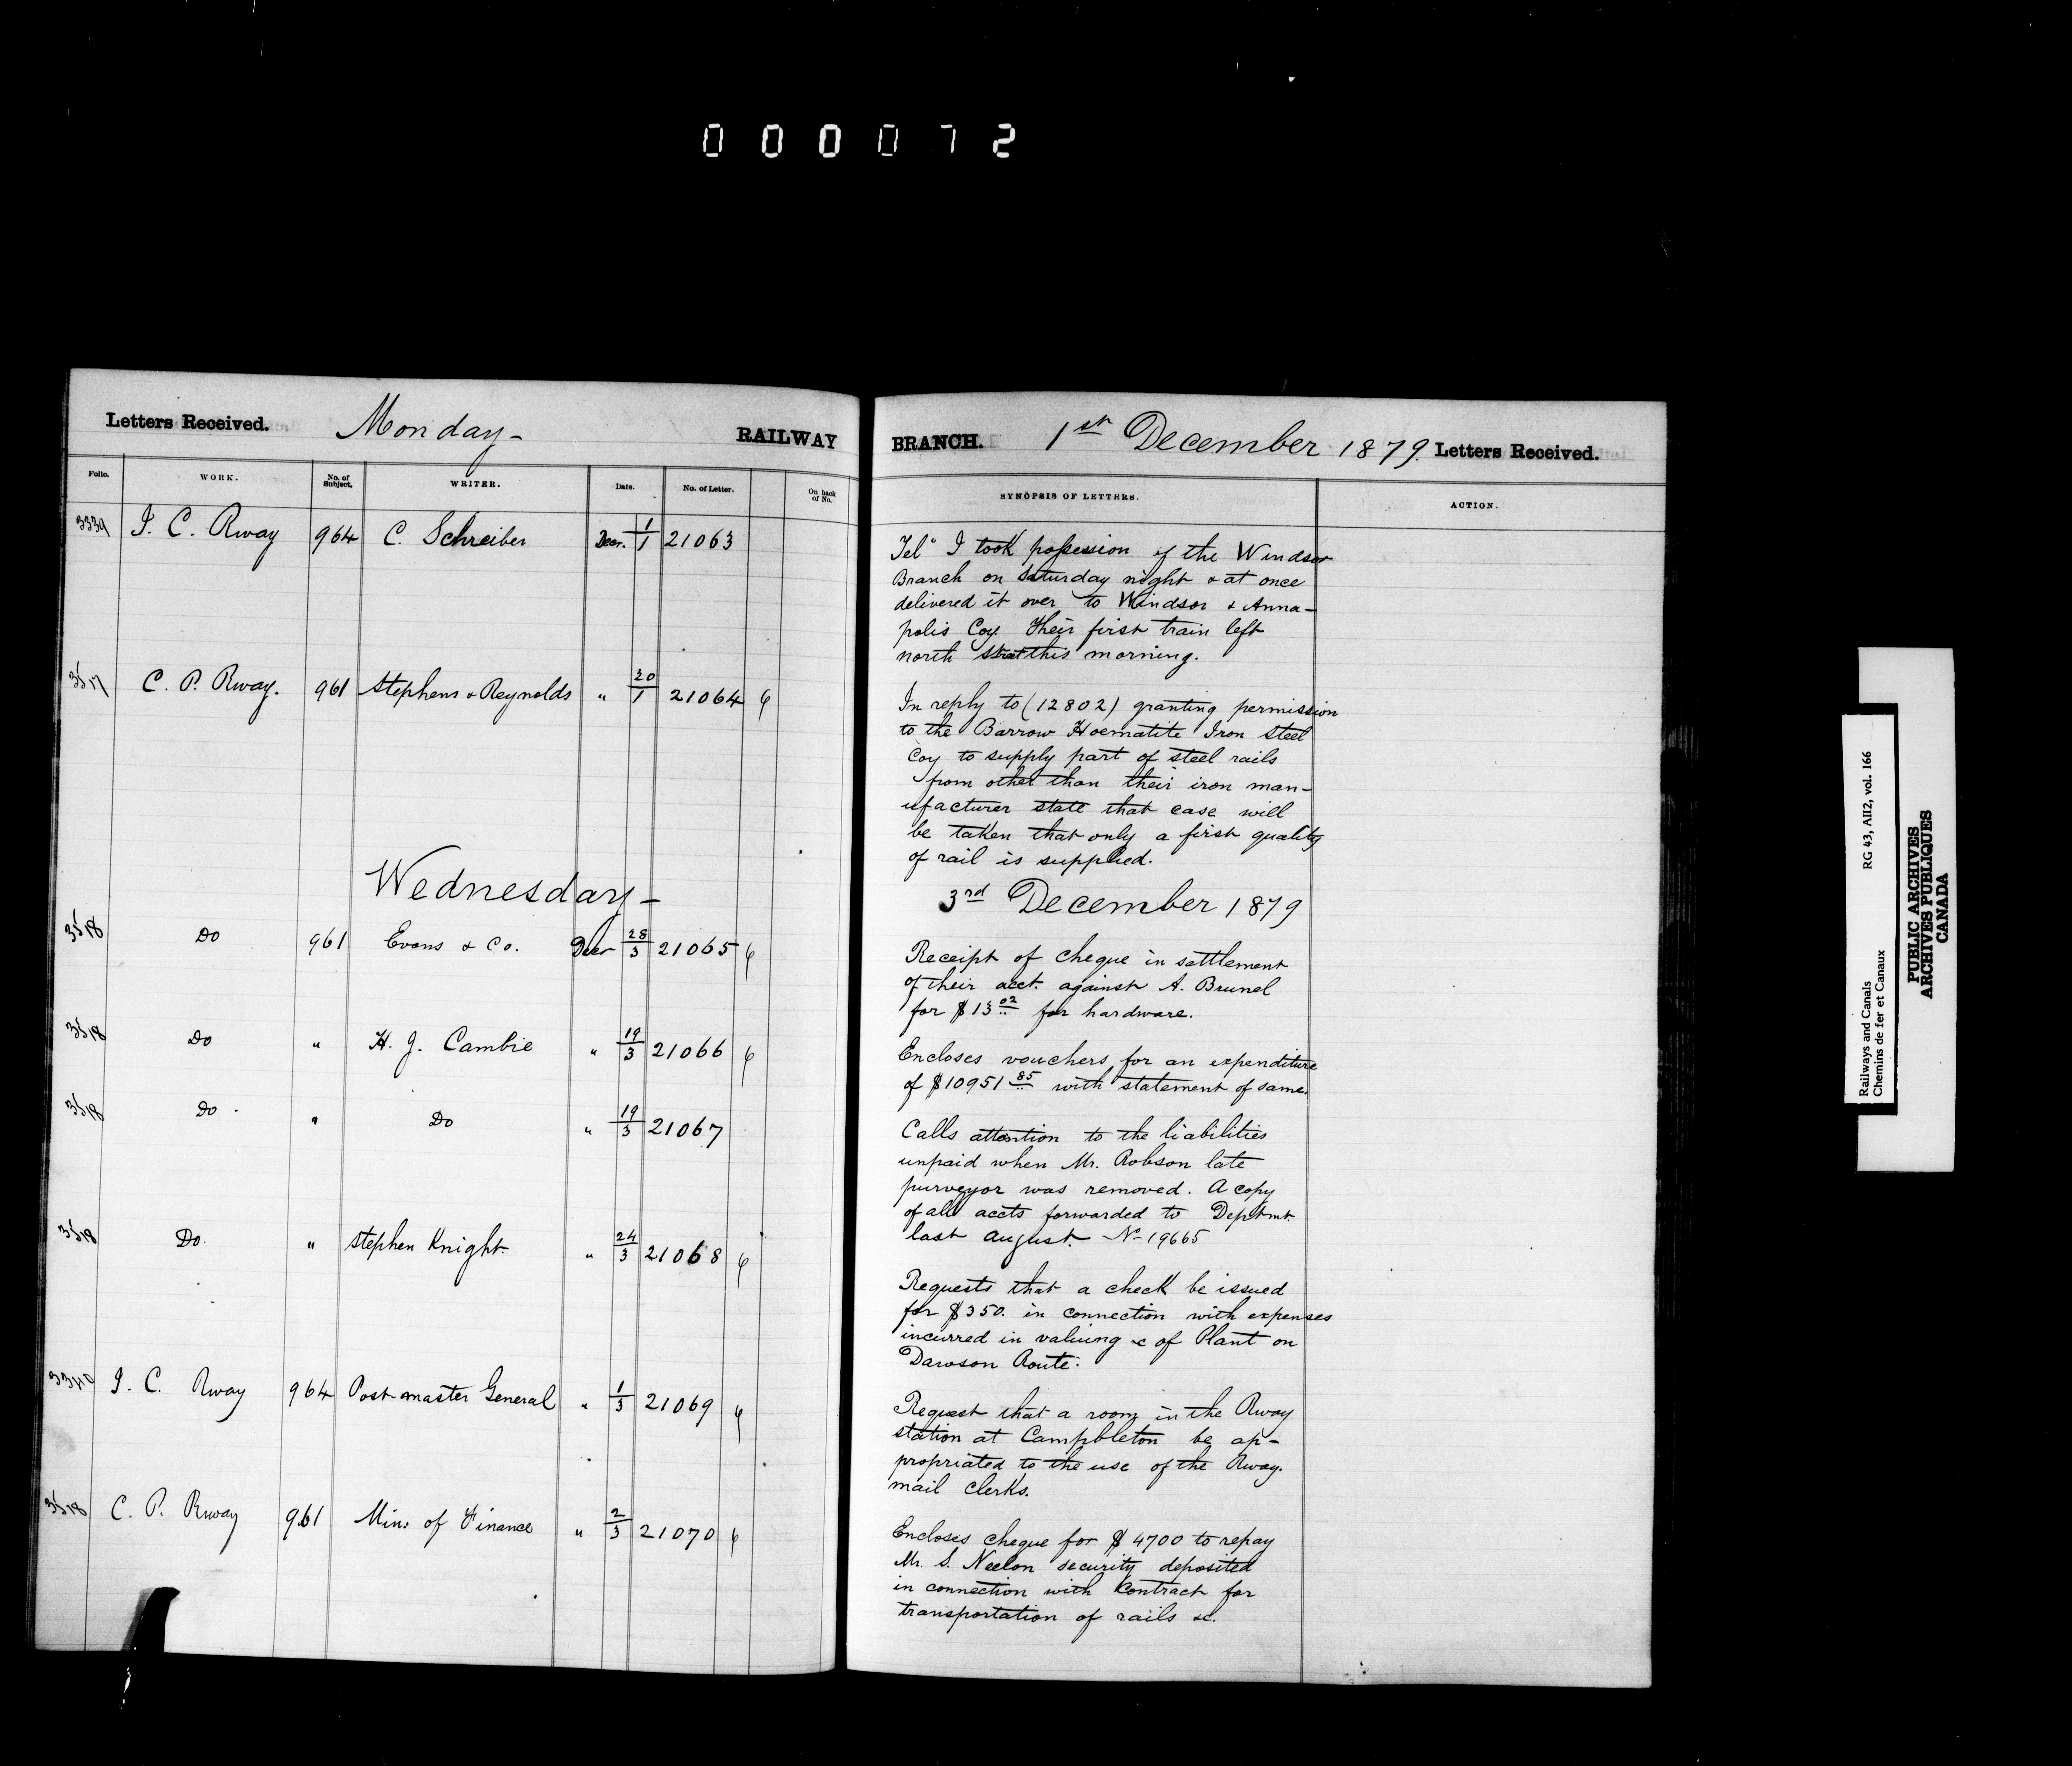 000072
Letters Received. Monday- RAILWAY
Folio. WORK. No. of Subject. WRITER. Date. No. of Letter. On back of No.
3339 I. C. Rway 964 C. Schreiber Decr. 1/1 21063
3517 C. P. Rway. 961 Stephens & Reynolds " 20/1 21064
Wednesday-
3518 Do 961 Evans & Co. Decr 28/3 21065
3518 Do " H. J. Cambie " 19/3 21066
3518 Do " Do " 19/3 21067
3518 Do. " Stephen Knight. " 24/3 21068
3340 I. C. Rway 964 Post-master General " 1/3 21069
3518 C. P. Rway 961 Min: of Finance " 2/3 21070
BRANCH. 1st December 1879. Letters Received.
SYNOPSIS OF LETTERS. ACTION.
Tel" I took possession of the Windsor
Branch on Saturday night & at once
delivered it over to Windsor & Anna-
polis Coy. Their first train left
north this morning.
In reply to (12802) granting permission
to the Barrow Hoematite Iron Steel
Coy to supply part of steel rails
from other than their iron man-
ufacturer state that case will
be taken that only a first quality
of rail is supplied.
3rd December 1879
Receipt of cheque in settlement
of their acct. against A. Brunel
for $13.02 for hardware.
Encloses vouchers for an expenditure
of $10951.85 with statement of same.
Calls attention to the liabilities
unpaid when Mr. Robson late
purveyor was removed. A copy
of all accts forwarded to Deptmt.
last August. No 19665
Requests that a check be issued
for $350. in connection with expenses
incurred in valuing &c of Plant on
Dawson Route.
Request that a room in the Rway
station at Campbleton be ap-
propriated to the use of the Rway.
mail clerks.
Encloses cheque for $4700 to repay
Mr. S. Neelon security deposited
in connection with Contract for
transportation of rails &c.
Railways and Canals RG 43, AII2, vol. 166
Chemins de fer et Canaux
PUBLIC ARCHIVES
ARCHIVES PUBLIQUES
CANADA